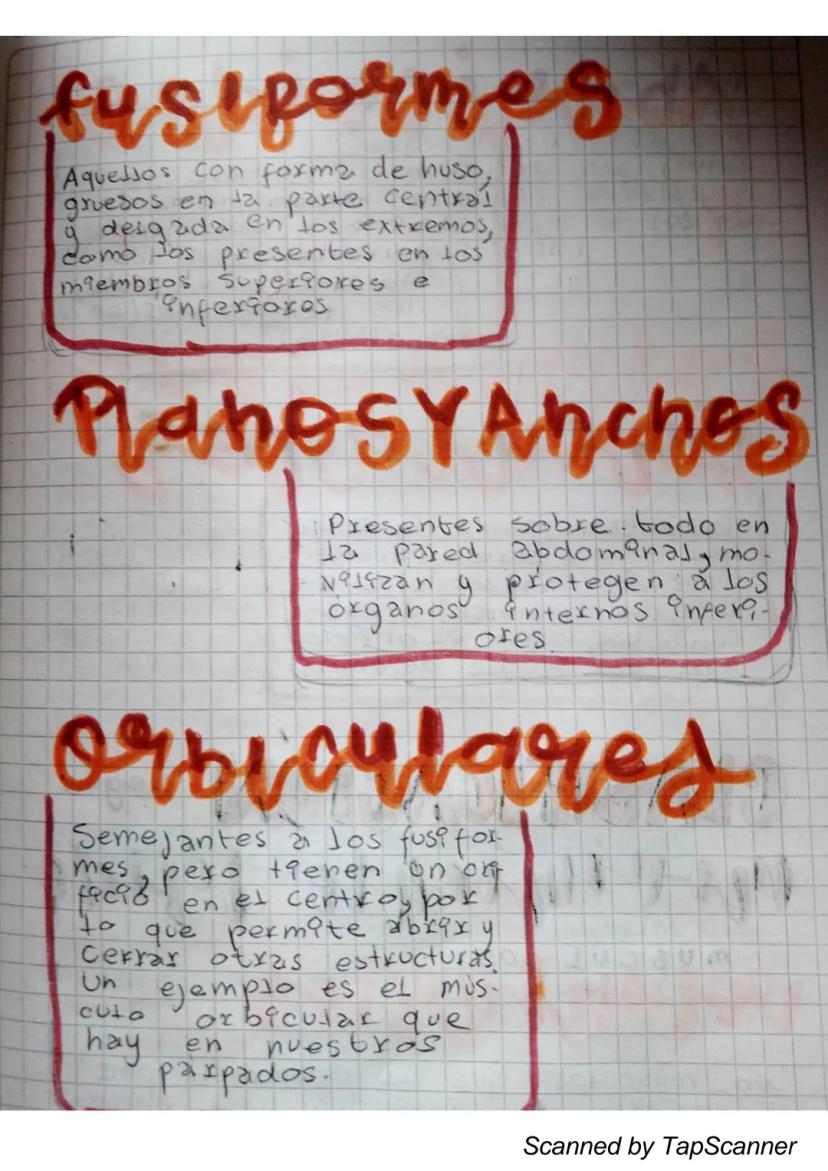 fusiformes
Aquellos con forma de huso,
gruesos en la parte central
y delgada en los extremos,
como los presentes en los
miembros superiores e
inferiores
Planos Y Anchos
Presentes sobre todo en
la pared abdominal, mo-
vilizan y protegen a los
órganos internos inferi-
ores.
orbiculares
Semejantes a los fusifor-
mes, pero tienen un ori-
ficio en el centro, por
lo que permite abrir y
cerrar otras estructuras.
Un ejemplo es el mús-
culo orbicular que
hay en nuestros
párpados.
Scanned by TapScanner